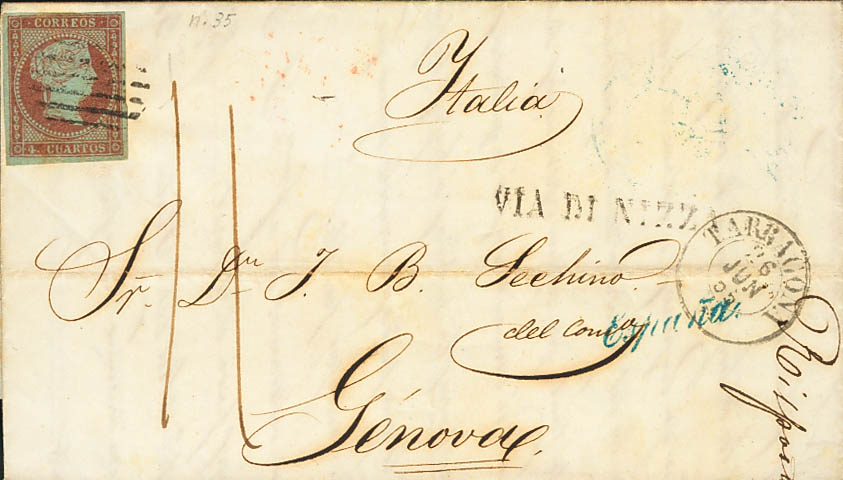 CORREOS
4. CUARTOS
n. 35
Italia
VIA DI NIZZA
TARRAGONA
6
JUN
Sr. Dn J. B. Sechino.
del Comº
España.
Génova